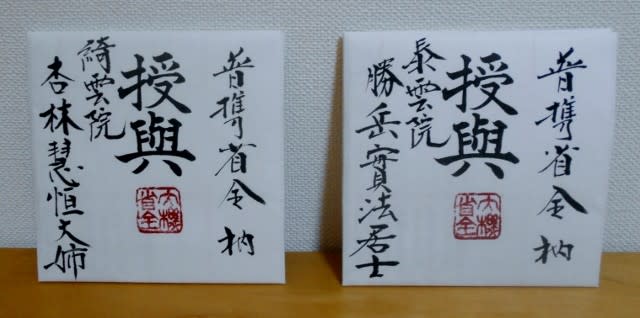 普携省全衲
授與
省全
綺雲院
杏林慧恒大姉
普携省全衲
授與
省全
泰雲院
勝岳實法居士